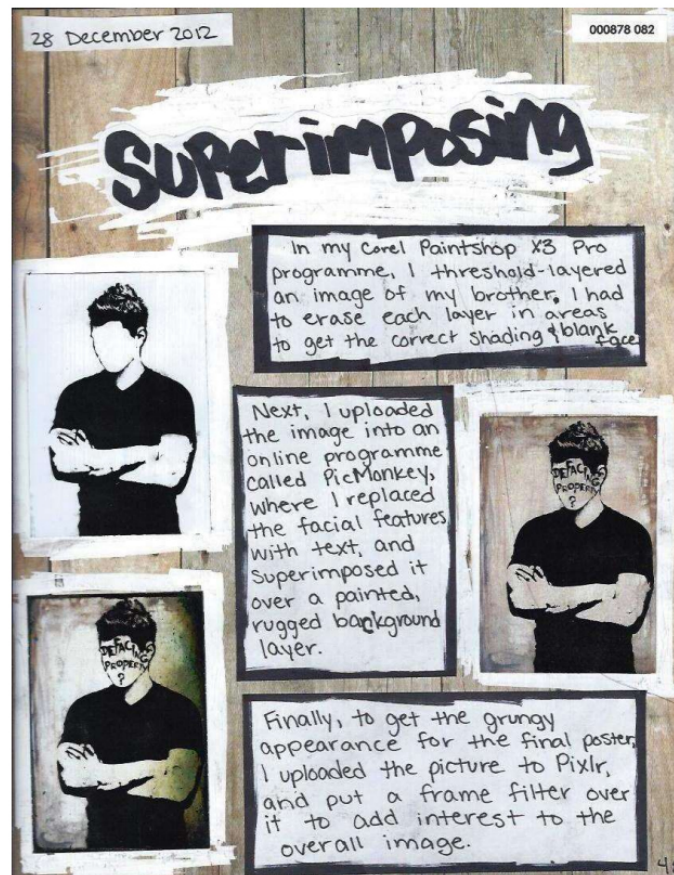 28 December 2012
000878 082
Superimposing
In my Corel Paintshop X3 Pro
programme, I threshold-layered
an image of my brother. I had
to erase each layer in areas
to get the correct shading & blank
face
Next, I uploaded
the image into an
online programme
called PicMonkey,
where I replaced
the facial features
with text, and
superimposed it
over a painted,
rugged background
layer.
DEFACING
PROPERTY
?
DEFACING
PROPERTY
?
Finally, to get the grungy
appearance for the final poster,
I uploaded the picture to Pixlr,
and put a frame filter over
it to add interest to the
overall image.